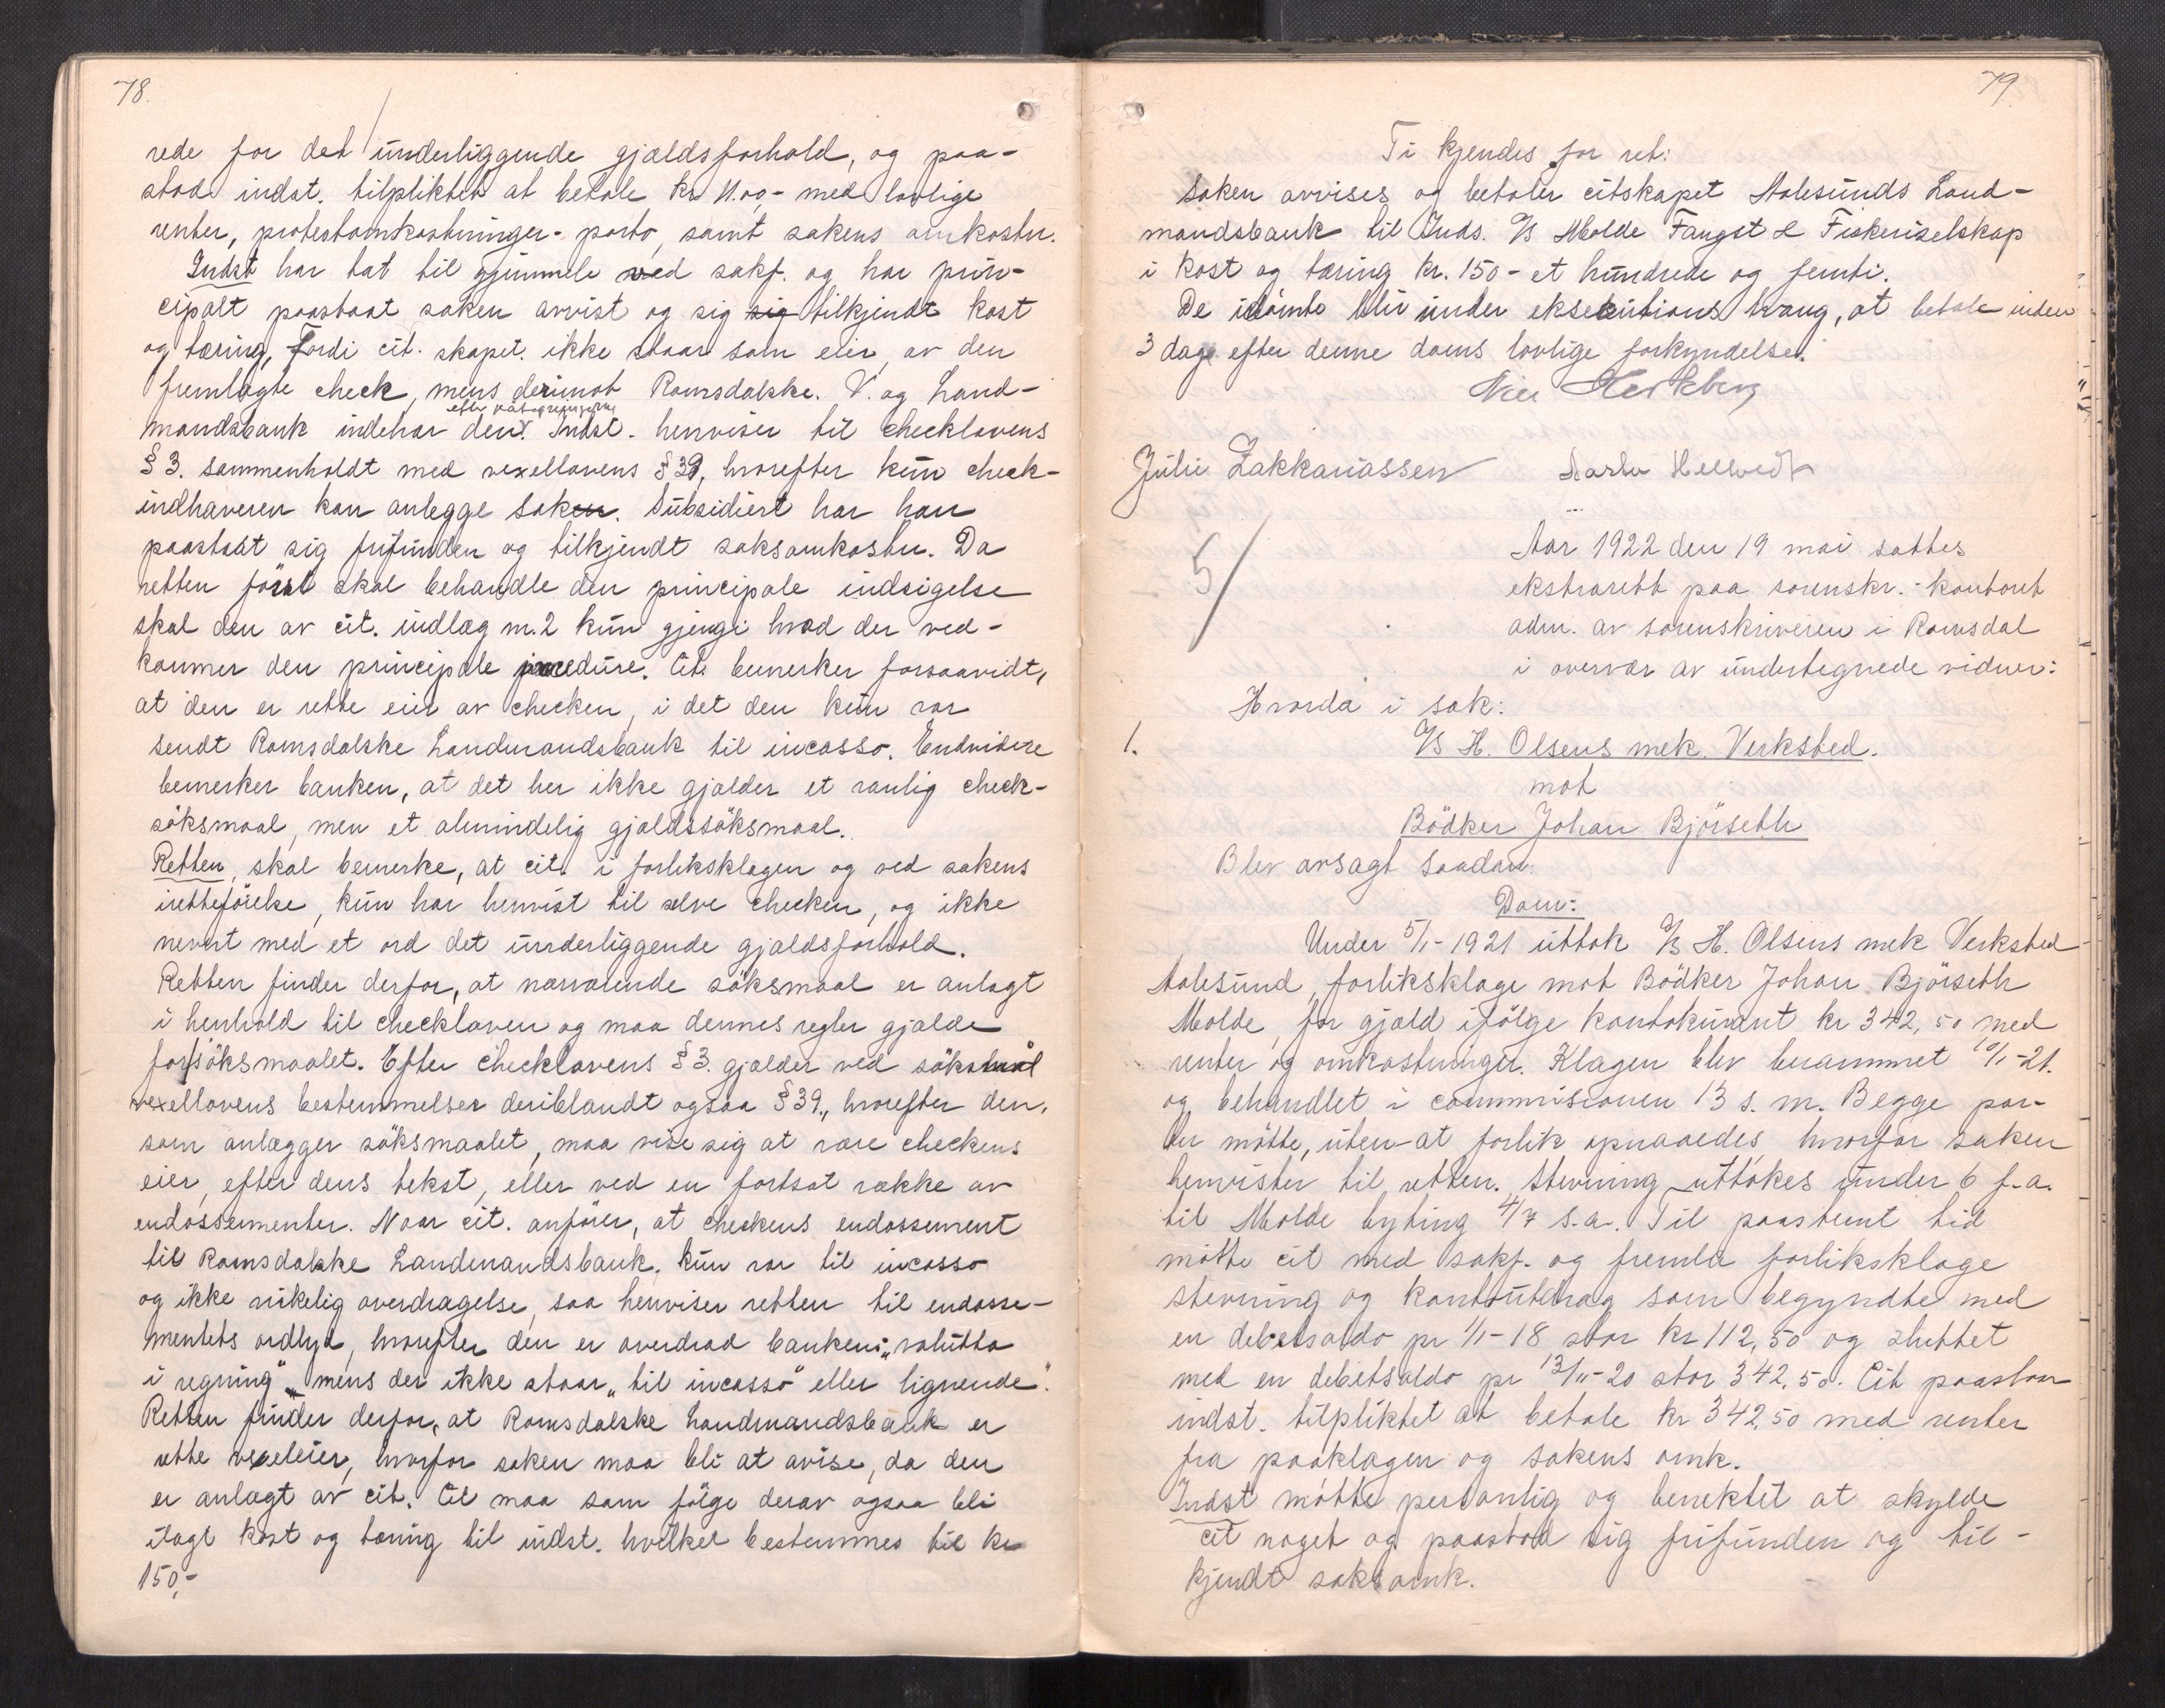 78.
rede for det underliggende gjældsforhold, og paa-
stod indst. tilpliktet at betale kr med lovlige
renter, protestomkostninger - porto, samt sakens omkostn.
Indst har tat til gjenmæle ved sakf. og har prin-
cipalt paastaat saken avvist og sig sig tilkjendt kost
og tæring, Fordi cit. skapet. ikke staar som eier av den
fremlagte check, mens derimot Romsdalske. V. og Land-
mandsbank indehar den. Indst. henviser til checklovens
§ 3. sammenholdt med vexellovens § 39, hvorefter kun check-
indhaveren kan anlegge saken. Subsidiert har han
paastaat sig frifunden og tilkjendt saksomkostn. Da
retten først skal behandle den principale indsigelse
skal den av cit. indlæg nr. 2 kun gjengi hvad der ved-
kommer den principale procedure. Cit. bemerker forsaavidt,
at den er rette eier av checken, i det den kun var
sendt Romsdalske Landmandsbank til incasso. Endvidere
bemerker banken, at det her ikke gjælder et vanlig check-
søksmaal, men et almindelig gjældssøksmaal.
Retten, skal bemerke, at cit. i forliksklagen og ved sakens
iretteførelse, kun har henvist til selve checken, og ikke
nevnt med et ord det underliggende gjældsforhold.
Retten finder derfor, at nærværende søksmaal er anlagt
i henhold til checkloven og maa dennes regler gjælde
for søksmaalet. Efter checklovens § 3. gjælder ved søksmaal
vexellovens bestemmelser deriblandt ogsaa § 39., hvorefter den,
som anlægger søksmaalet, maa vise sig at være checkens
eier, efter dens tekst, eller ved en fortsat række av
endossementer. Naar cit. anfører, at checkens endossement
til Romsdalske Landmandsbank, kun var til incasso
og ikke virkelig overdragelse, saa henviser retten til endosse-
mentets ordlyd, hvorefter den er overdrad banken: „valutta
i regning" mens der ikke staar „til incasso" eller lignende".
Retten finder derfor, at Romsdalske Landmandsbank er
rette vexeleier, hvorfor saken maa bli at avise, da den
er anlagt av cit. Cit maa som følge derav ogsaa bli
ilagt kost og tæring til indst. hvilket bestemmes til kr
150,-
79.
Ti kjendes for ret:
Saken avvises og betaler citskapet Aalesunds Land-
mandsbank til Inds. A/S Molde Fangst & Fiskeriselskap
i kost og tæring kr. 150 - et hundrede og femti.
De idømte blir under eksekutions tvang, at betale inden
3 dage efter denne doms lovlige forkyndelse.
Julie Zakkariassen
5/
Aar 1922 den 19 mai sattes
ekstrarett paa sorenskr. - kontoret
adm. av sorenskriveren i Romsdal
i overvær av undertegnede vidner:
Hvorda i sak:
1.
A/S H. Olsens mek. Verksted.
mot
Bødker Johan Bjørseth
Blev avsagt saadan:
Dom:
Under 5/1-1921 uttok A/S H. Olsens mek Verksted
Aalesund, forliksklage mot Bødker Johan Bjørseth
Molde, for gjæld ifølge kontokurant kr 342,50 med
renter og omkostninger. Klagen blev berammet 10/1-21.
og behandlet i commisionen 13 s. m. Begge par-
ter møtte, uten at forlik opnaaedes, hvorfor saken
henvistes til retten. Stevning uttokes under 6 f. a.
til Molde byting 4/7 s. a. Til paastemt tid
møtte cit med sakf. og fremla forliksklage
stevning og kontoutdrag som begyndte med
en debetsaldo pr 1/1-18 stor kr 112,50 og sluttet
med en debetsaldo pr 13/11-20 stor 342,50. Cit paastod
indst. tilpliktet at betale kr 342,50 med renter
fra paaklagen og sakens omk.
Indst møtte personlig og benektet at skylde
cit noget og paastod sig frifunden og til-
kjendt saksomk.